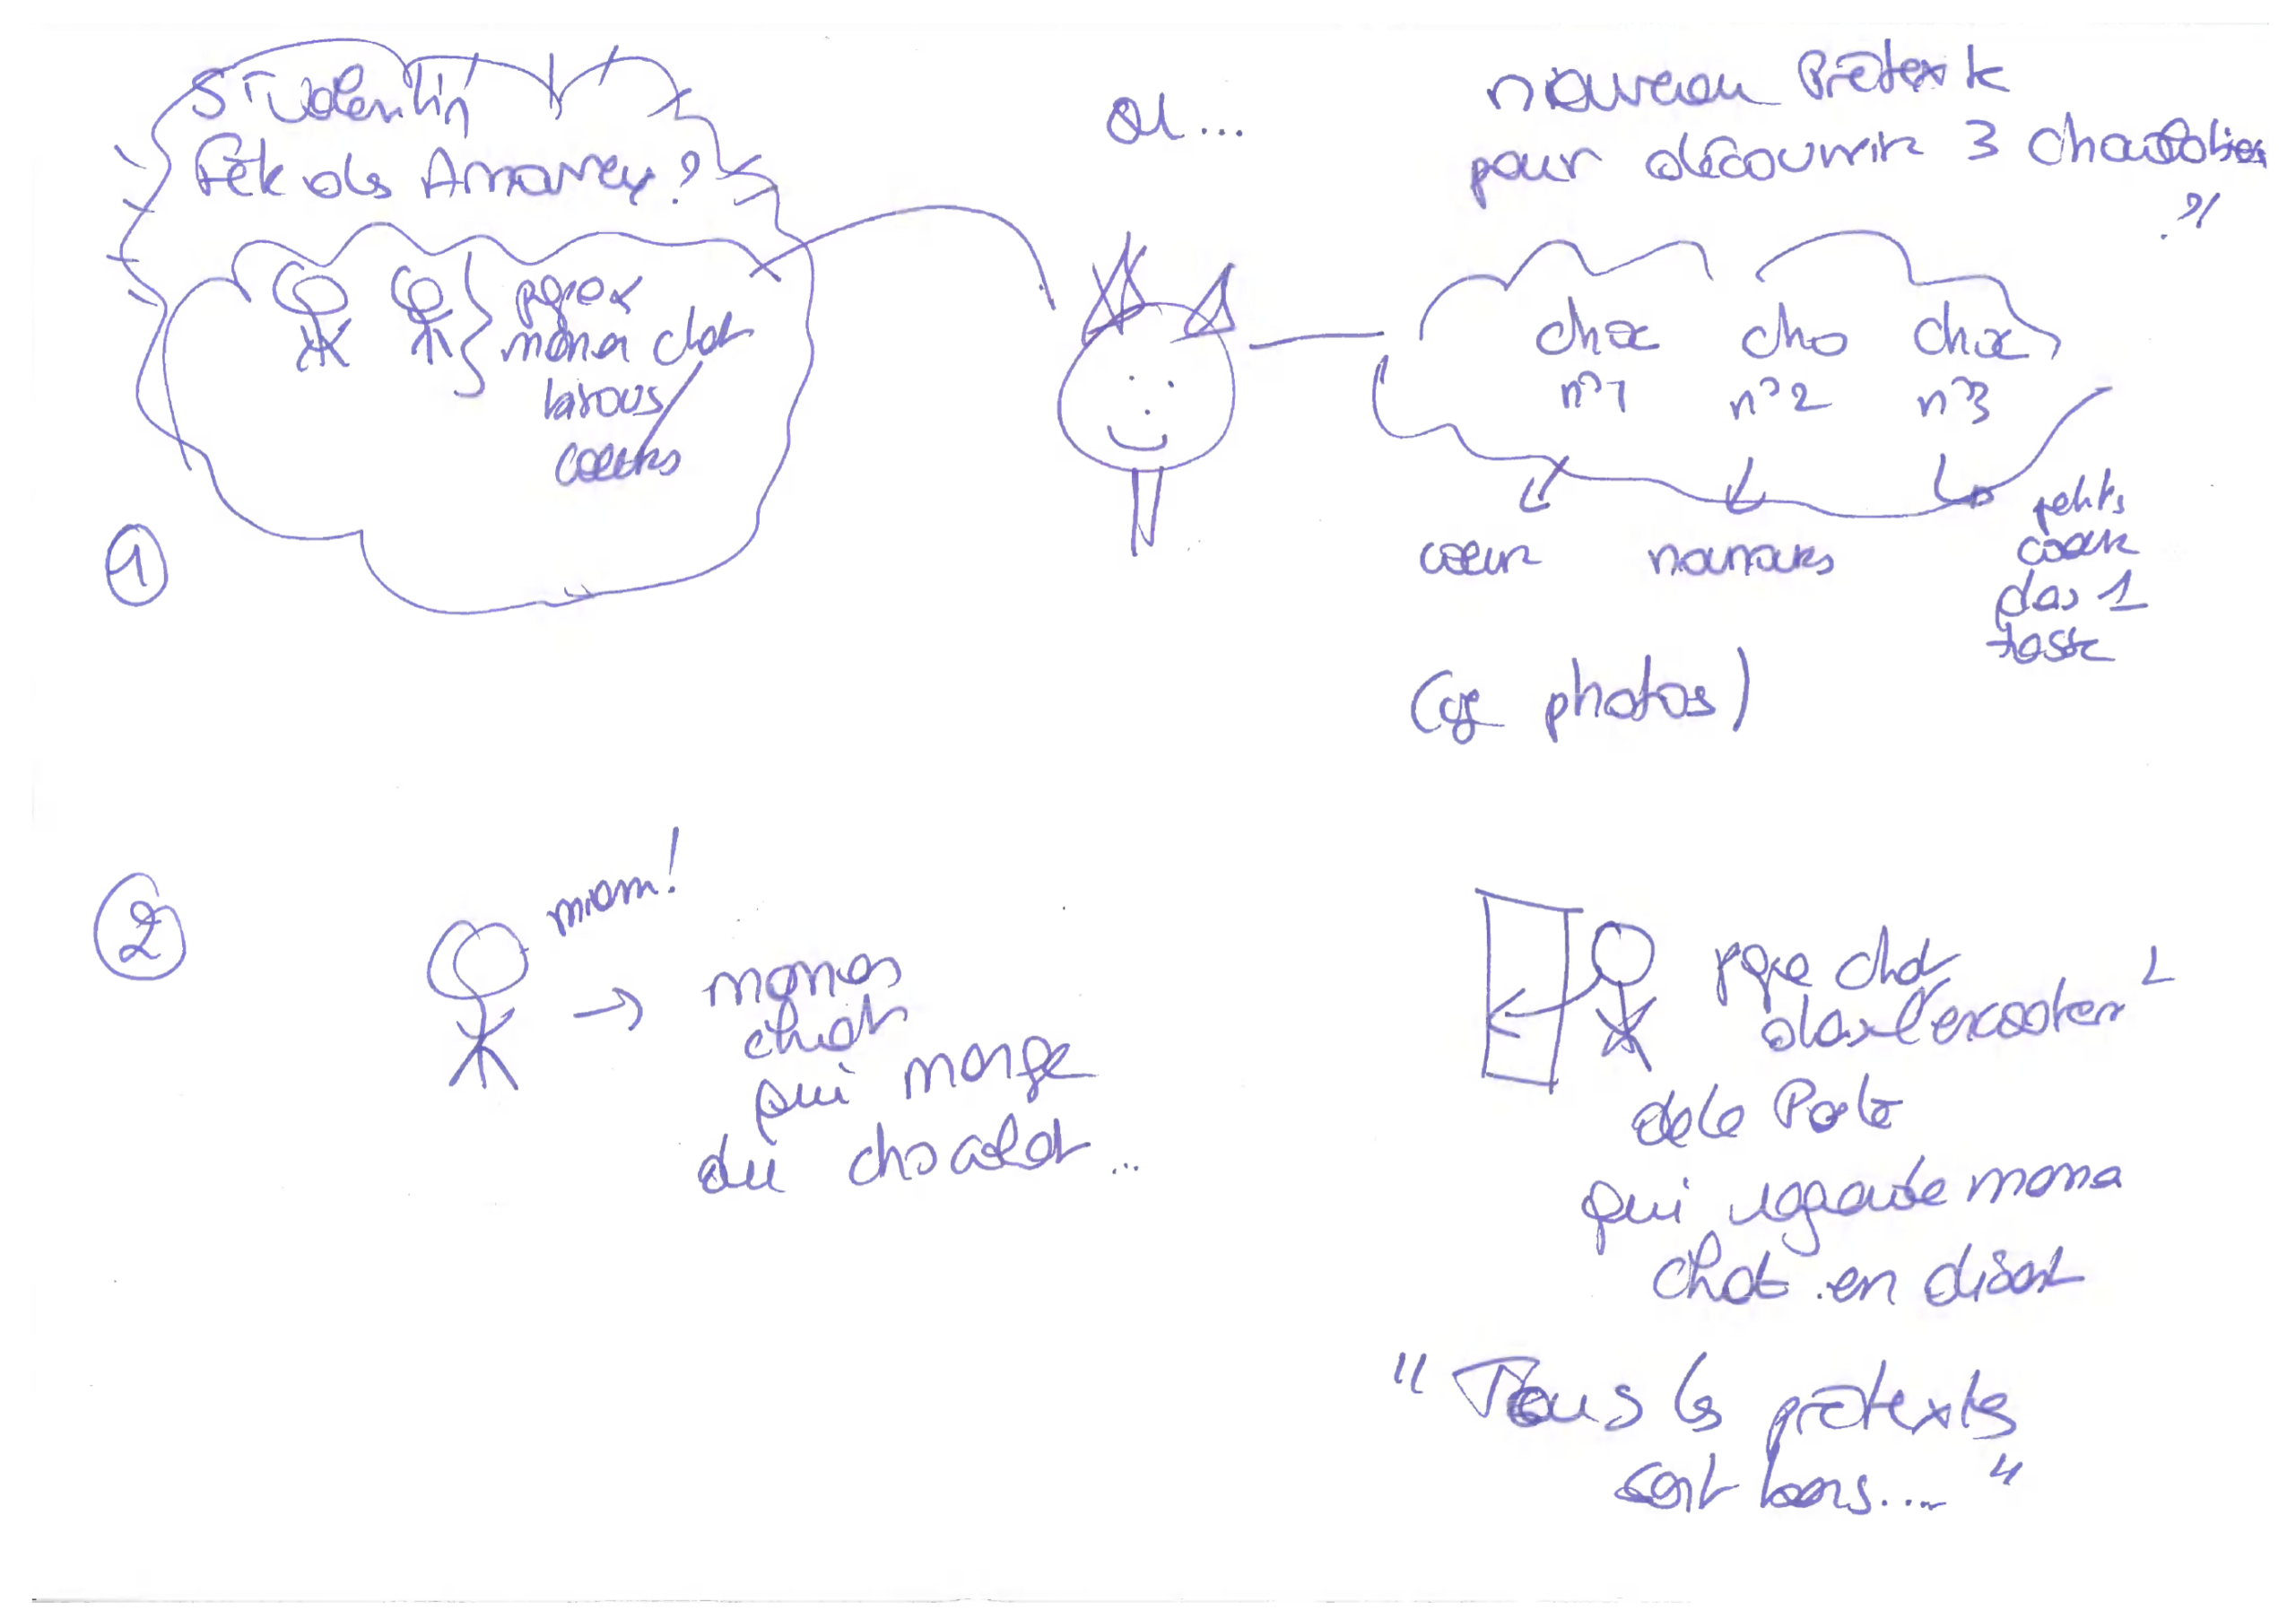 St Valentin
fête des Amoureux ?
ou ...
nouveau Prétexte
pour découvrir 3
?
papa &
mama chat
bisous /
coeurs
cho
n°1
cho
n°2
cho
n°3
coeur
nounours
petits
coeur
dans 1
①
(cf photos)
②
miam !
→ maman
chat
qui mange
du chocolat ...
papa chat
dans l'
de la Porte
qui regarde mama
chat en disant
" Tous les prétextes
sont bons .... "